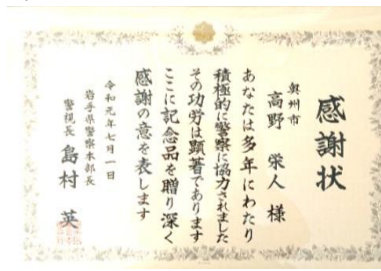 感謝状
奥州市
高野 栄人 様
あなたは多年にわたり
積極的に警察に協力されました
その功労は顕著であります
ここに記念品を贈り深く
感謝の意を表します
令和元年七月一日
岩手県警察本部長
警視長 島村 英